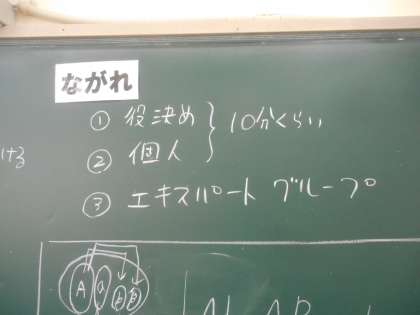 ながれ
① 役決め
② 個人
10分くらい
③ エキスパート グループ
A